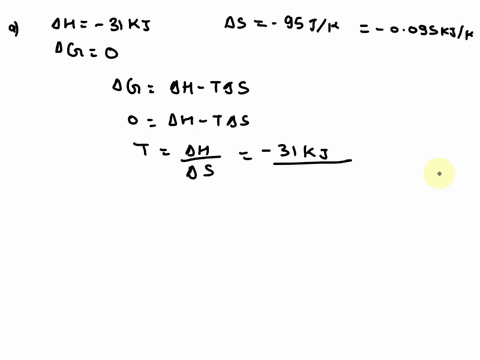 a) ΔH = -31 KJ ΔS = -95 J/K = -0.095 KJ/K
ΔG = 0
ΔG = ΔH - TΔS
0 = ΔH - TΔS
T = ΔH/ΔS = -31 KJ